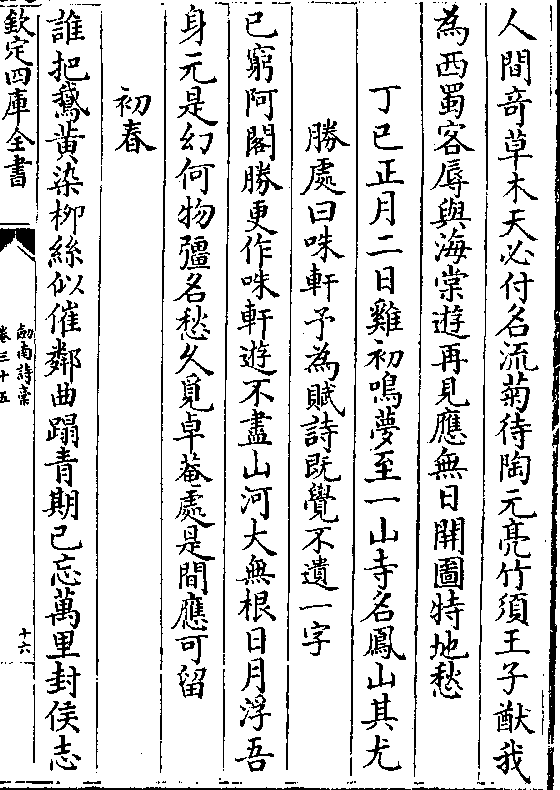 人間竒草木天必付名流菊待陶元亮竹須王子猷我
為西蜀客辱與海棠遊再見應無日開圖特地愁
丁巳正月二日雞初鳴夢至一山寺名鳳山其尤
勝處曰咮軒予為賦詩既覺不遺一字
已窮阿閣勝更作咮軒遊不盡山河大無根日月浮吾
身元是幻何物彊名愁久覓卓菴處是間應可留
初春
誰把鵞黃染柳絲似催鄰曲蹋青期已忘萬里封侯志
欽定四庫全書
劍南詩稾
卷三十五
十六